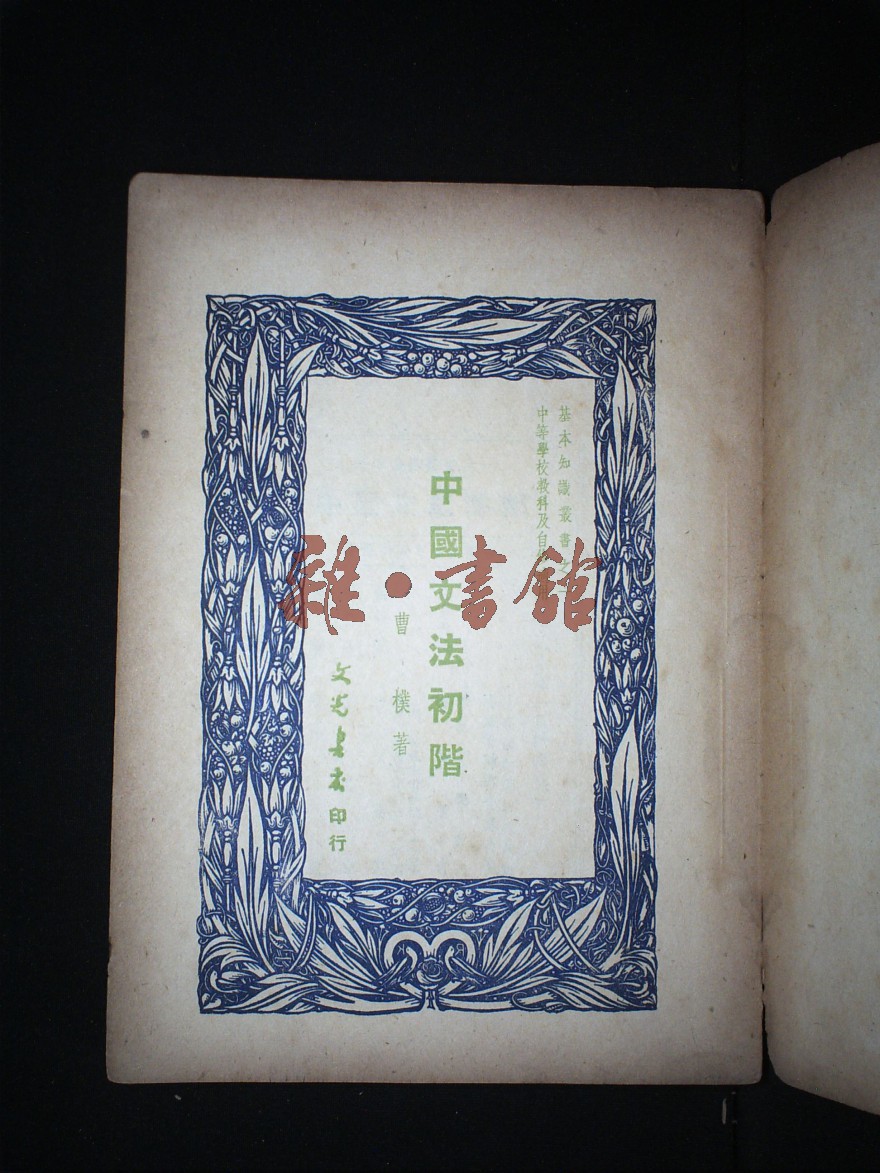 基本知識叢書之
中等學校教科及自
中國文法初階
曹樸著
文光書店印行
雜·書館